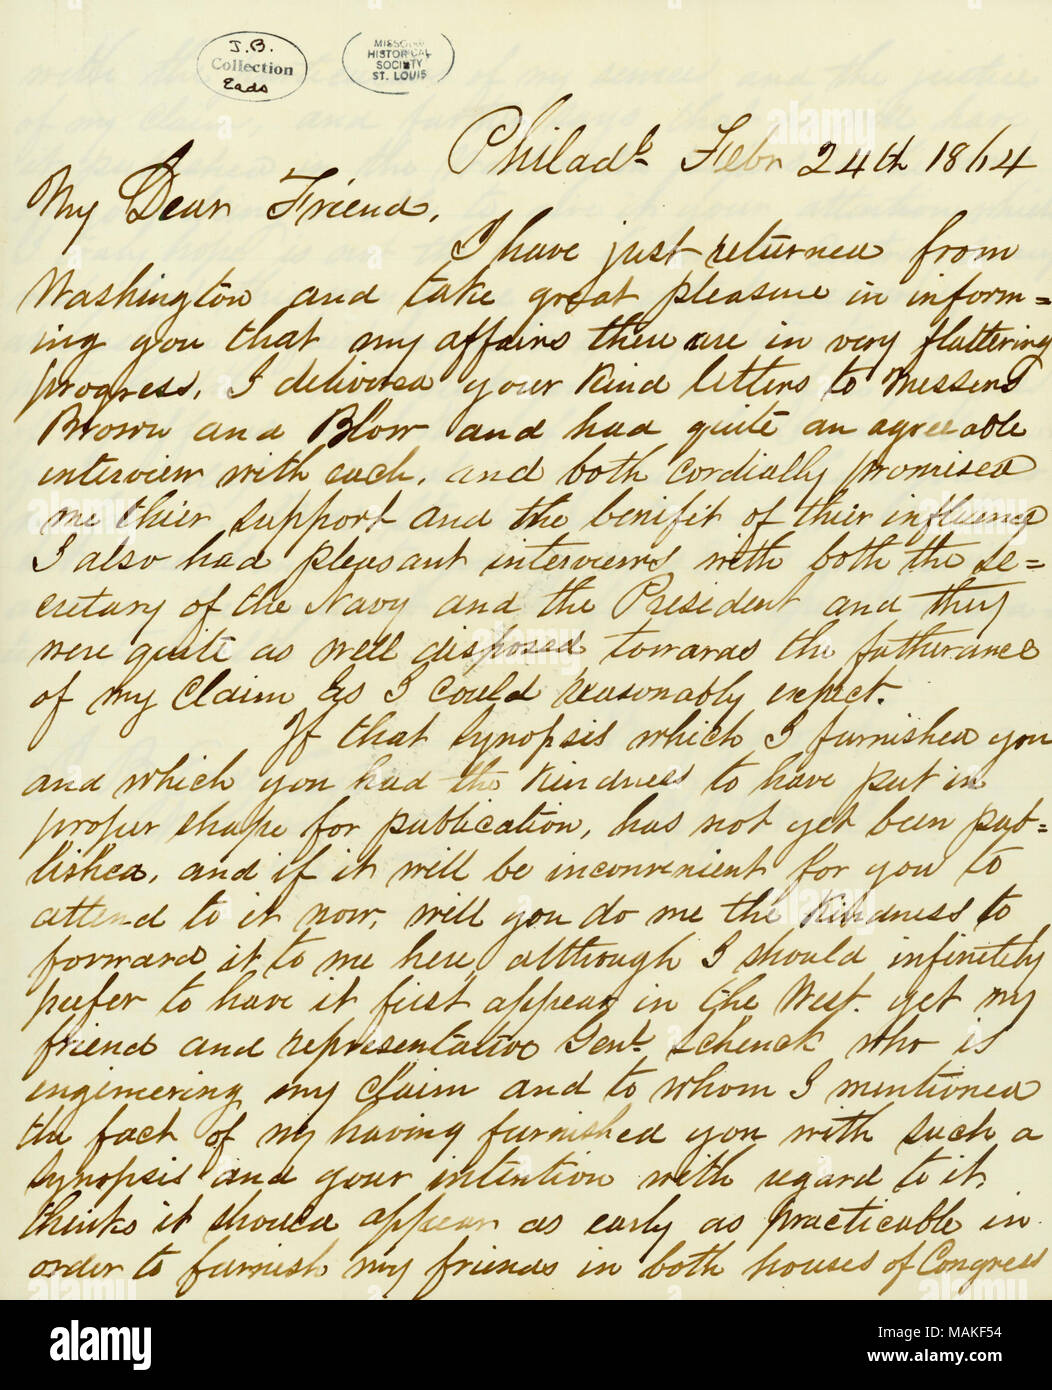 J.B.
Collection
Eads
MISSOURI
HISTORICAL
SOCIETY
ST. LOUIS
Philada Febr 24th 1864
My Dear Friend,
I have just returned from
Washington and take great pleasure in inform=
ing you that my affairs there are in very flattering
progress. I delivered your kind letters to Messers
Brown and Blow and had quite an agreeable
interview with each, and both cordially promised
me thier support and the benifit of thier influence
I also had pleasant interviews with both the se=
cretary of the Navy and the President and they
were quite as well disposed towards the futherance
of my claim as I could reasonably expect.
If that synopsis which I furnished you
and which you had the kindness to have put in
proper shape for publication, has not yet been pub=
lished, and if it will be inconvenient for you to
attend to it now, will you do me the kindness to
forward it to me here, although I should infinitely
prefer to have it first appear in the West. yet my
friend and representative Genl. Schenck who is
engineering my claim and to whom I mentioned
the fact of my having furnished you with such a
synopsis and your intention with regard to it,
thinks it should appear as early as practicable in
order to furnish my friends in both houses of Congress
alamy
Image ID: MAKF54
www.alamy.com